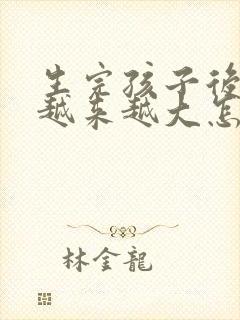 生完孩子後
越来越大怎
林金龍